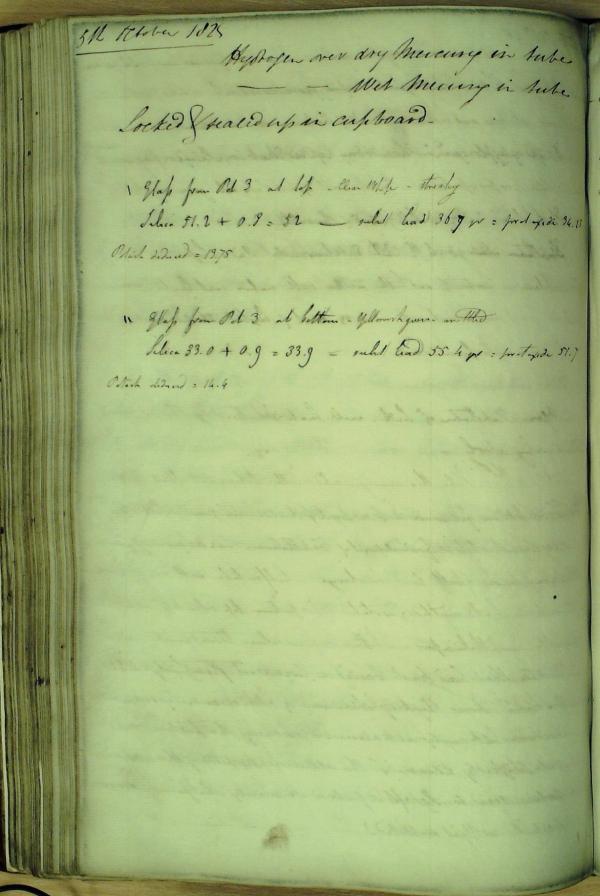 5th October 1825
Hydrogen over dry Mercury in tube
— — Wet Mercury in tube
Locked & sealed up in cupboard.
\ Glass from Pot 3 at top - clear White - streaky
Silica 51.2 + 0.8 = 52 — sulst lead 36.7 gr = protoxide
Potash deduced = 13.75
\\ Glass from Pot 3 at bottom - Yellowish green - mottled
Silica 33.0 + 0.9 = 33.9 — sulst lead 55.4 gr = protoxide 51.7
Potash deduced = 14.4